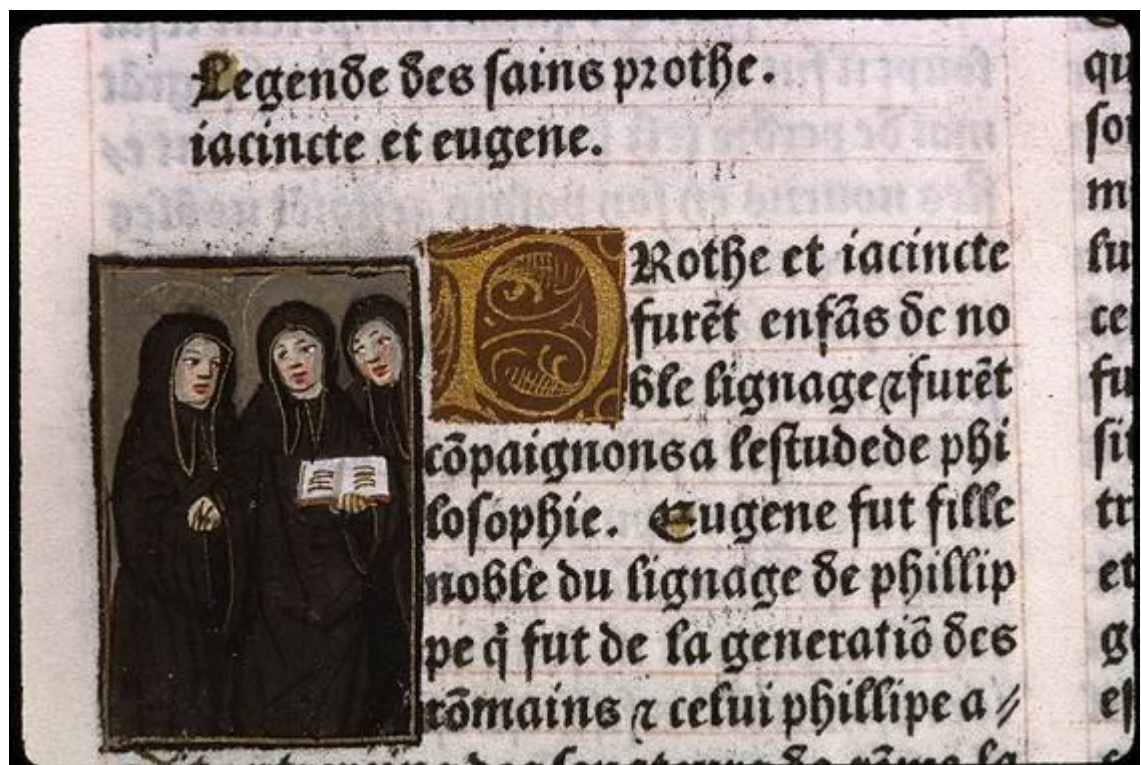 Legende des sains prothe.
iacincte et eugene.
PRothe et iacincte
furēt enfās de no
ble lignage ⁊ furēt
cōpaignons a lestude de phi
losophie. Eugene fut fille
noble du lignage de phillip
pe q̄ fut de la generatiō des
rōmains ⁊ celui phillipe a//
qu
so
m
lu
ce
fu
sit
tr
et
g
es